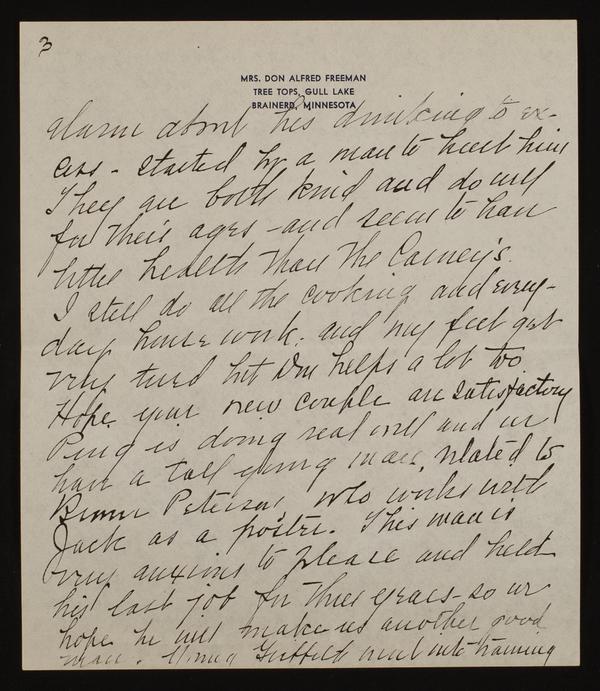 3
MRS. DON ALFRED FREEMAN
TREE TOPS, GULL LAKE
BRAINERD, MINNESOTA
alarm about his drinking to ex-
cess - started by a man to hurt him
They are both kind and do well
for their ages - and seem to have
better health than the Carney's.
I still do all the cooking and every-
day house work, and my feet get
very tired but Don helps a lot too.
Hope your new couple are satisfactory
is doing real well and we
have a tall young man, related to
Peterson, who works with
Jack as a
This man is
very anxious to please and held
his last job for three years - so we
hope he will make us another good
man. went into training